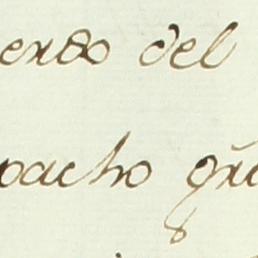 erdo del
pacho gra